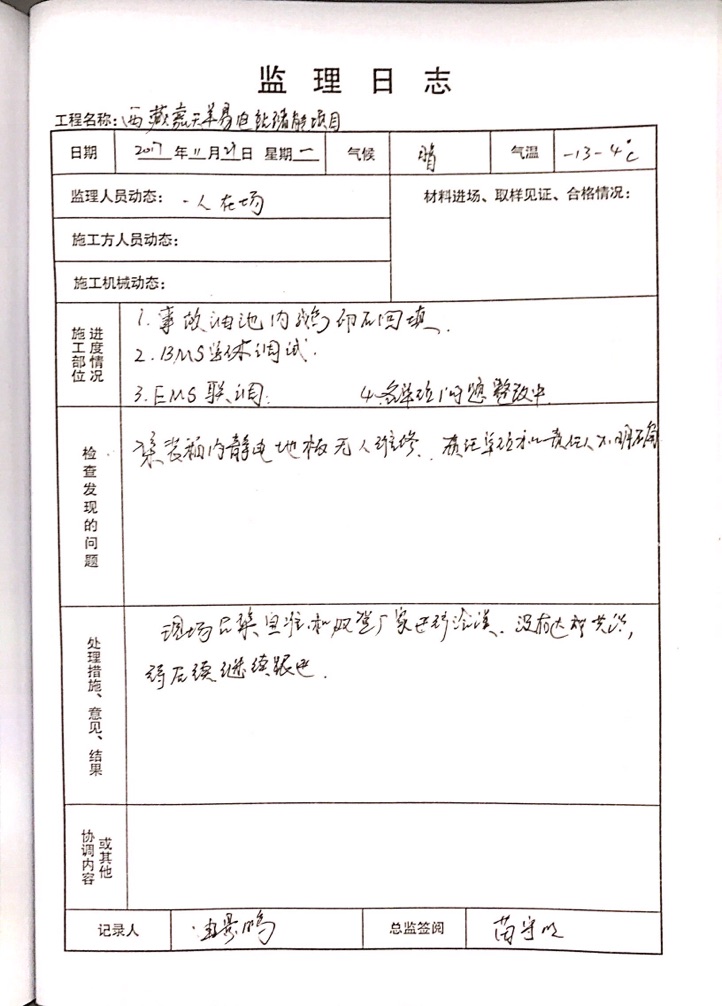 监理日志
工程名称：西藏嘉天羊易电站储能项目
日期 2017年11月 日 星期一 气候 晴 气温 -13-4℃
监理人员动态：一人在场
材料进场、取样见证、合格情况：
施工方人员动态：
施工机械动态：
施工部位进度情况
1.事故油池内鹅卵石回填.
2.BMS 调试.
3.EMS联调. 4.各单位问题整改中.
检查发现的问题
集装箱内静电地板无人维修. 责任单位和责任人不明确
处理措施、意见、结果
现场 和 厂家进行洽谈. 没有达成共识,
待后续继续跟进.
或其他协调内容
记录人 景鹏
总监签阅 苗守